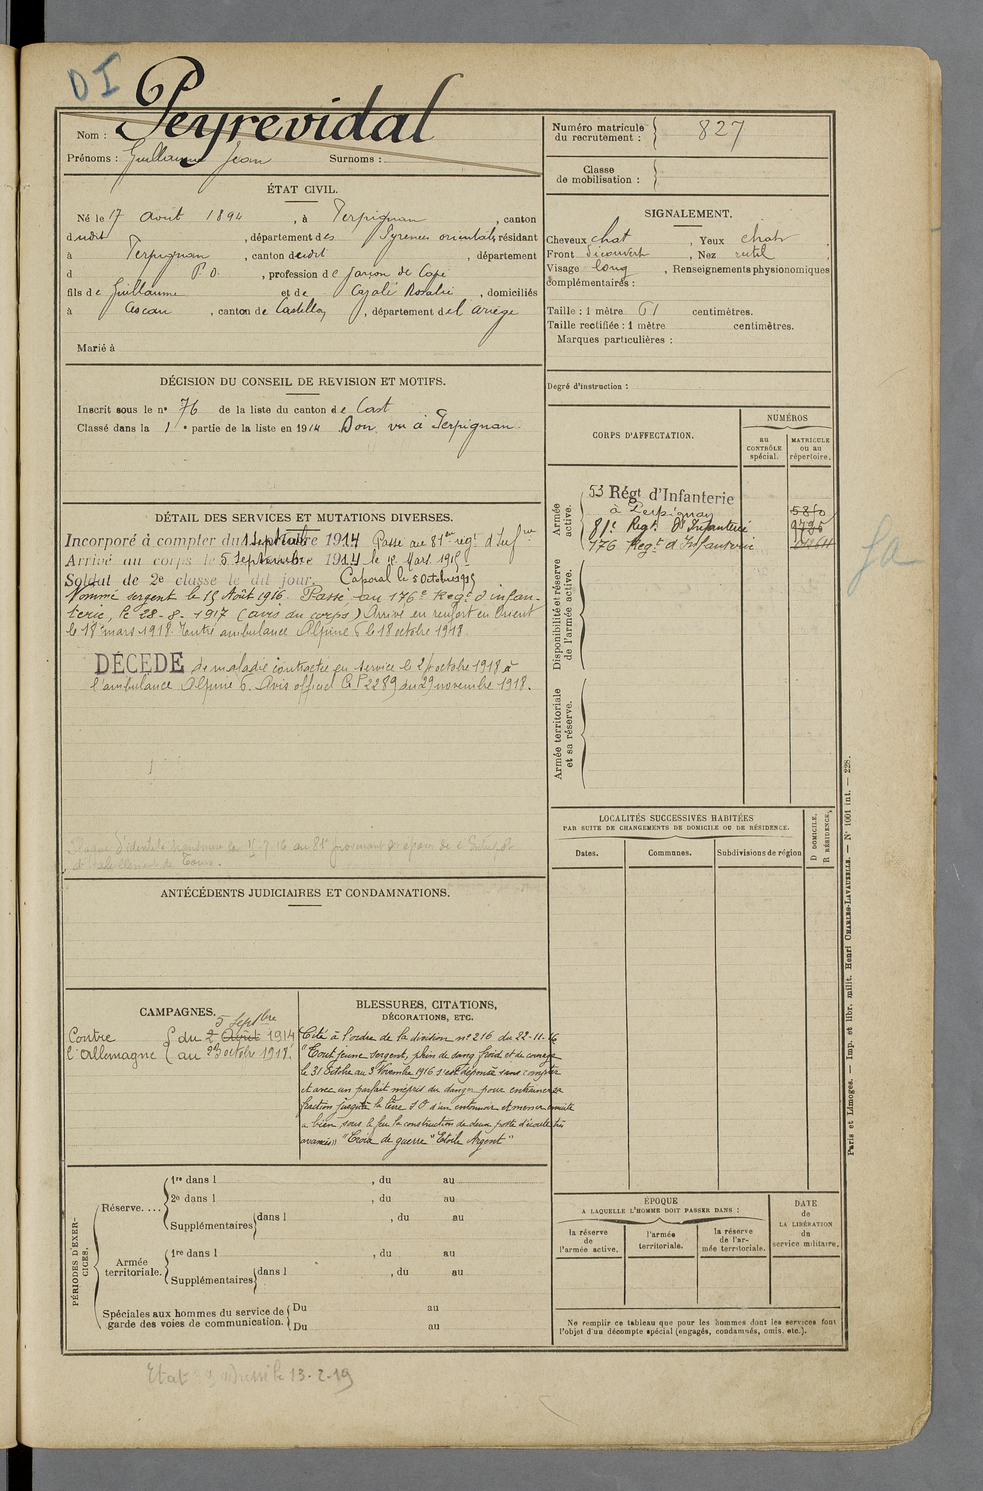 DI
Peyrevidal
Nom :
Prénoms : Guillaume Jean Surnoms :
Numéro matricule du recrutement : 827
Classe de mobilisation :
ÉTAT CIVIL.
Né le 17 Août 1894, à Perpignan, canton
dudit, département des Pyrénées orientales, résidant
à Perpignan, canton dudit, département
d P.O., profession de garçon de Café
fils de Guillaume et de Cazalé Rosalie, domiciliés
à Ascou, canton de Castillon, département de l'Ariège
Marié à
SIGNALEMENT.
Cheveux chat, Yeux chat
Front découvert, Nez rectil
Visage long, Renseignements physionomiques
complémentaires :
Taille : 1 mètre 61 centimètres.
Taille rectifiée : 1 mètre centimètres.
Marques particulières :
Degré d'instruction :
DÉCISION DU CONSEIL DE REVISION ET MOTIFS.
Inscrit sous le nº 76 de la liste du canton de Cast
Classé dans la 1e partie de la liste en 1914 Bon, vu à Perpignan.
CORPS D'AFFECTATION.
NUMÉROS
AU CONTRÔLE spécial.
MATRICULE ou au répertoire.
Armée active.
53 Régt d'Infanterie
à Perpignan
81e Regt. d'Infanterie
176 Regt d'Infanterie
Disponibilité et réserve de l'armée active.
Armée territoriale et sa réserve.
DÉTAIL DES SERVICES ET MUTATIONS DIVERSES.
Incorporé à compter du 1 Septembre 1914 Passé au 81e regt d'Infrie
Arrivé au corps le 5 Septembre 1914 le 12 Mars 1915
Soldat de 2e classe le dit jour. Caporal le 5 Octobre 1915
Nommé sergent le 15 Août 1916. Passé au 176e Regt d'infan-
terie, le 28-8-1917 (avis du corps) Arrivé en renfort en Orient
le 18 mars 1918. Entré ambulance Alpine 6 le 18 octobre 1918
DÉCÉDÉ de maladie contractée en service le 24 octobre 1918 à
l'ambulance Alpine 6. Avis officiel 2289 du 29 novembre 1918.
ANTÉCÉDENTS JUDICIAIRES ET CONDAMNATIONS.
LOCALITÉS SUCCESSIVES HABITÉES
PAR SUITE DE CHANGEMENTS DE DOMICILE OU DE RÉSIDENCE.
Dates. Communes. Subdivisions de région
D DOMICILE, R RÉSIDENCE,
CAMPAGNES.
5 Septbre
Contre l'Allemagne
du 2 Août 1914
au 24 octobre 1918.
BLESSURES, CITATIONS,
DÉCORATIONS, ETC.
Cité à l'ordre de la division nº 216 du 22-11-16
"Tout jeune sergent, plein de sang froid et de courage
le 31 Octobre au 3 Novembre 1916 s'est dépensé sans compter
et avec un parfait mépris du danger pour entrainer sa
fraction jusqu'à la lèvre S O d'un entonnoir et mener ensuite
a bien sous le feu la construction de deux poste d'écoute très
avancés" "Croix de guerre" Etoile Argent"
PÉRIODES D'EXERCICES.
Réserve....
1re dans l , du au
2e dans l , du au
Supplémentaires dans l , du au
Armée territoriale.
1re dans l , du au
Supplémentaires dans l , du au
Spéciales aux hommes du service de garde des voies de communication.
Du au
Du au
ÉPOQUE
A LAQUELLE L'HOMME DOIT PASSER DANS :
la réserve de l'armée active.
l'armée territoriale.
la réserve de l'armée territoriale.
DATE de LA LIBÉRATION du service militaire.
Ne remplir ce tableau que pour les hommes dont les services font
l'objet d'un décompte spécial (engagés, condamnés, omis, etc.).
Paris et Limoges. — Imp. et libr. milit. Henri CHARLES-LAVAUZELLE. — Nº 1001 int. — 228.
Etat adressé le 13-2-19